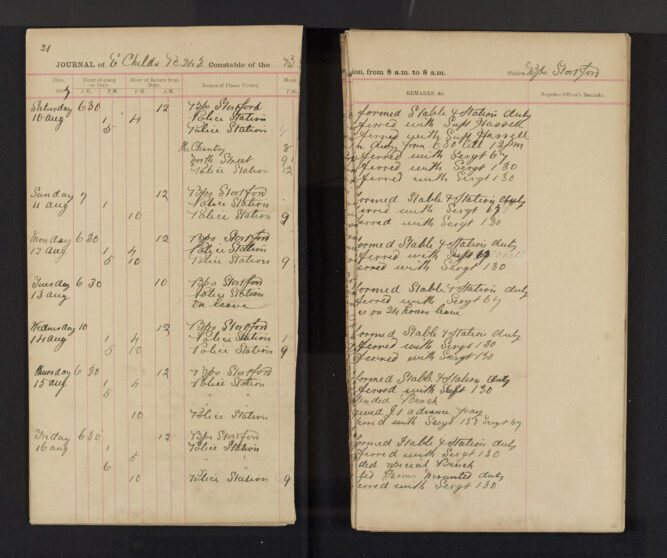 21
JOURNAL of E Childs PC 243 Constable of the
Date. Hour of going on Duty. Hour of Return from Duty. Names of Places Visited. Hour
A.M. P.M. P.M. A.M. P.M.
Saturday 6 30 12 B/ps Stortford
10 Aug 1 4 Police Station
5 Police Station
The Chantry 8
North Street 9
Police Station 12
Sunday 9 12 B/ps Stortford
Aug 1 Police Station
10 Police Station 9
Monday 6 30 12 B/ps Stortford
12 Aug 1 4 Police Station
5 10 Police Station 9
Tuesday 6 30 10 B/ps Stortford
13 Aug Police Station
on leave
Wednesday 10 12 B/ps Stortford
14 Aug 1 4 Police Station 1
5 10 Police Station 9
Thursday 6 30 12 B/ps Stortford
15 Aug 1 4 Police Station
5 " "
10 Police Station
Friday 6 30 12 B/ps Stortford
16 Aug 1 Police Station
1 5 " "
6
10 Police Station 9
ion, from 8 a.m. to 8 a.m. Station B/ps Stortford
REMARKS, &c. Superior Officer's Remarks.
formed Stable & Station duty
ferred with Supt Hassell
ferred with Supt Hassell
n duty from 6 30 till 12 pm
ferred with Sergt 67
ferred with Sergt 130
ferred with Sergt 130
ormed Stable & Station duty
erred with Sergt
erred with Sergt 130
ormed Stable & Station duty
ferred with
erred with Sergt 130
formed Stable & Station duty
ferred with Sergt 67
ce on 24 hours leave
ormed Stable & Station duty
ferred with Sergt 130
ferred with Sergt 130
formed Stable & Station duty
ferred with Sergt 130
ended Bench
eived £1 advance pay
erred with Sergt 130 Sergt 67
formed Stable & Station duty
ferred with Sergt 130
ded special Bench
mounted duty
erred with Sergt 130